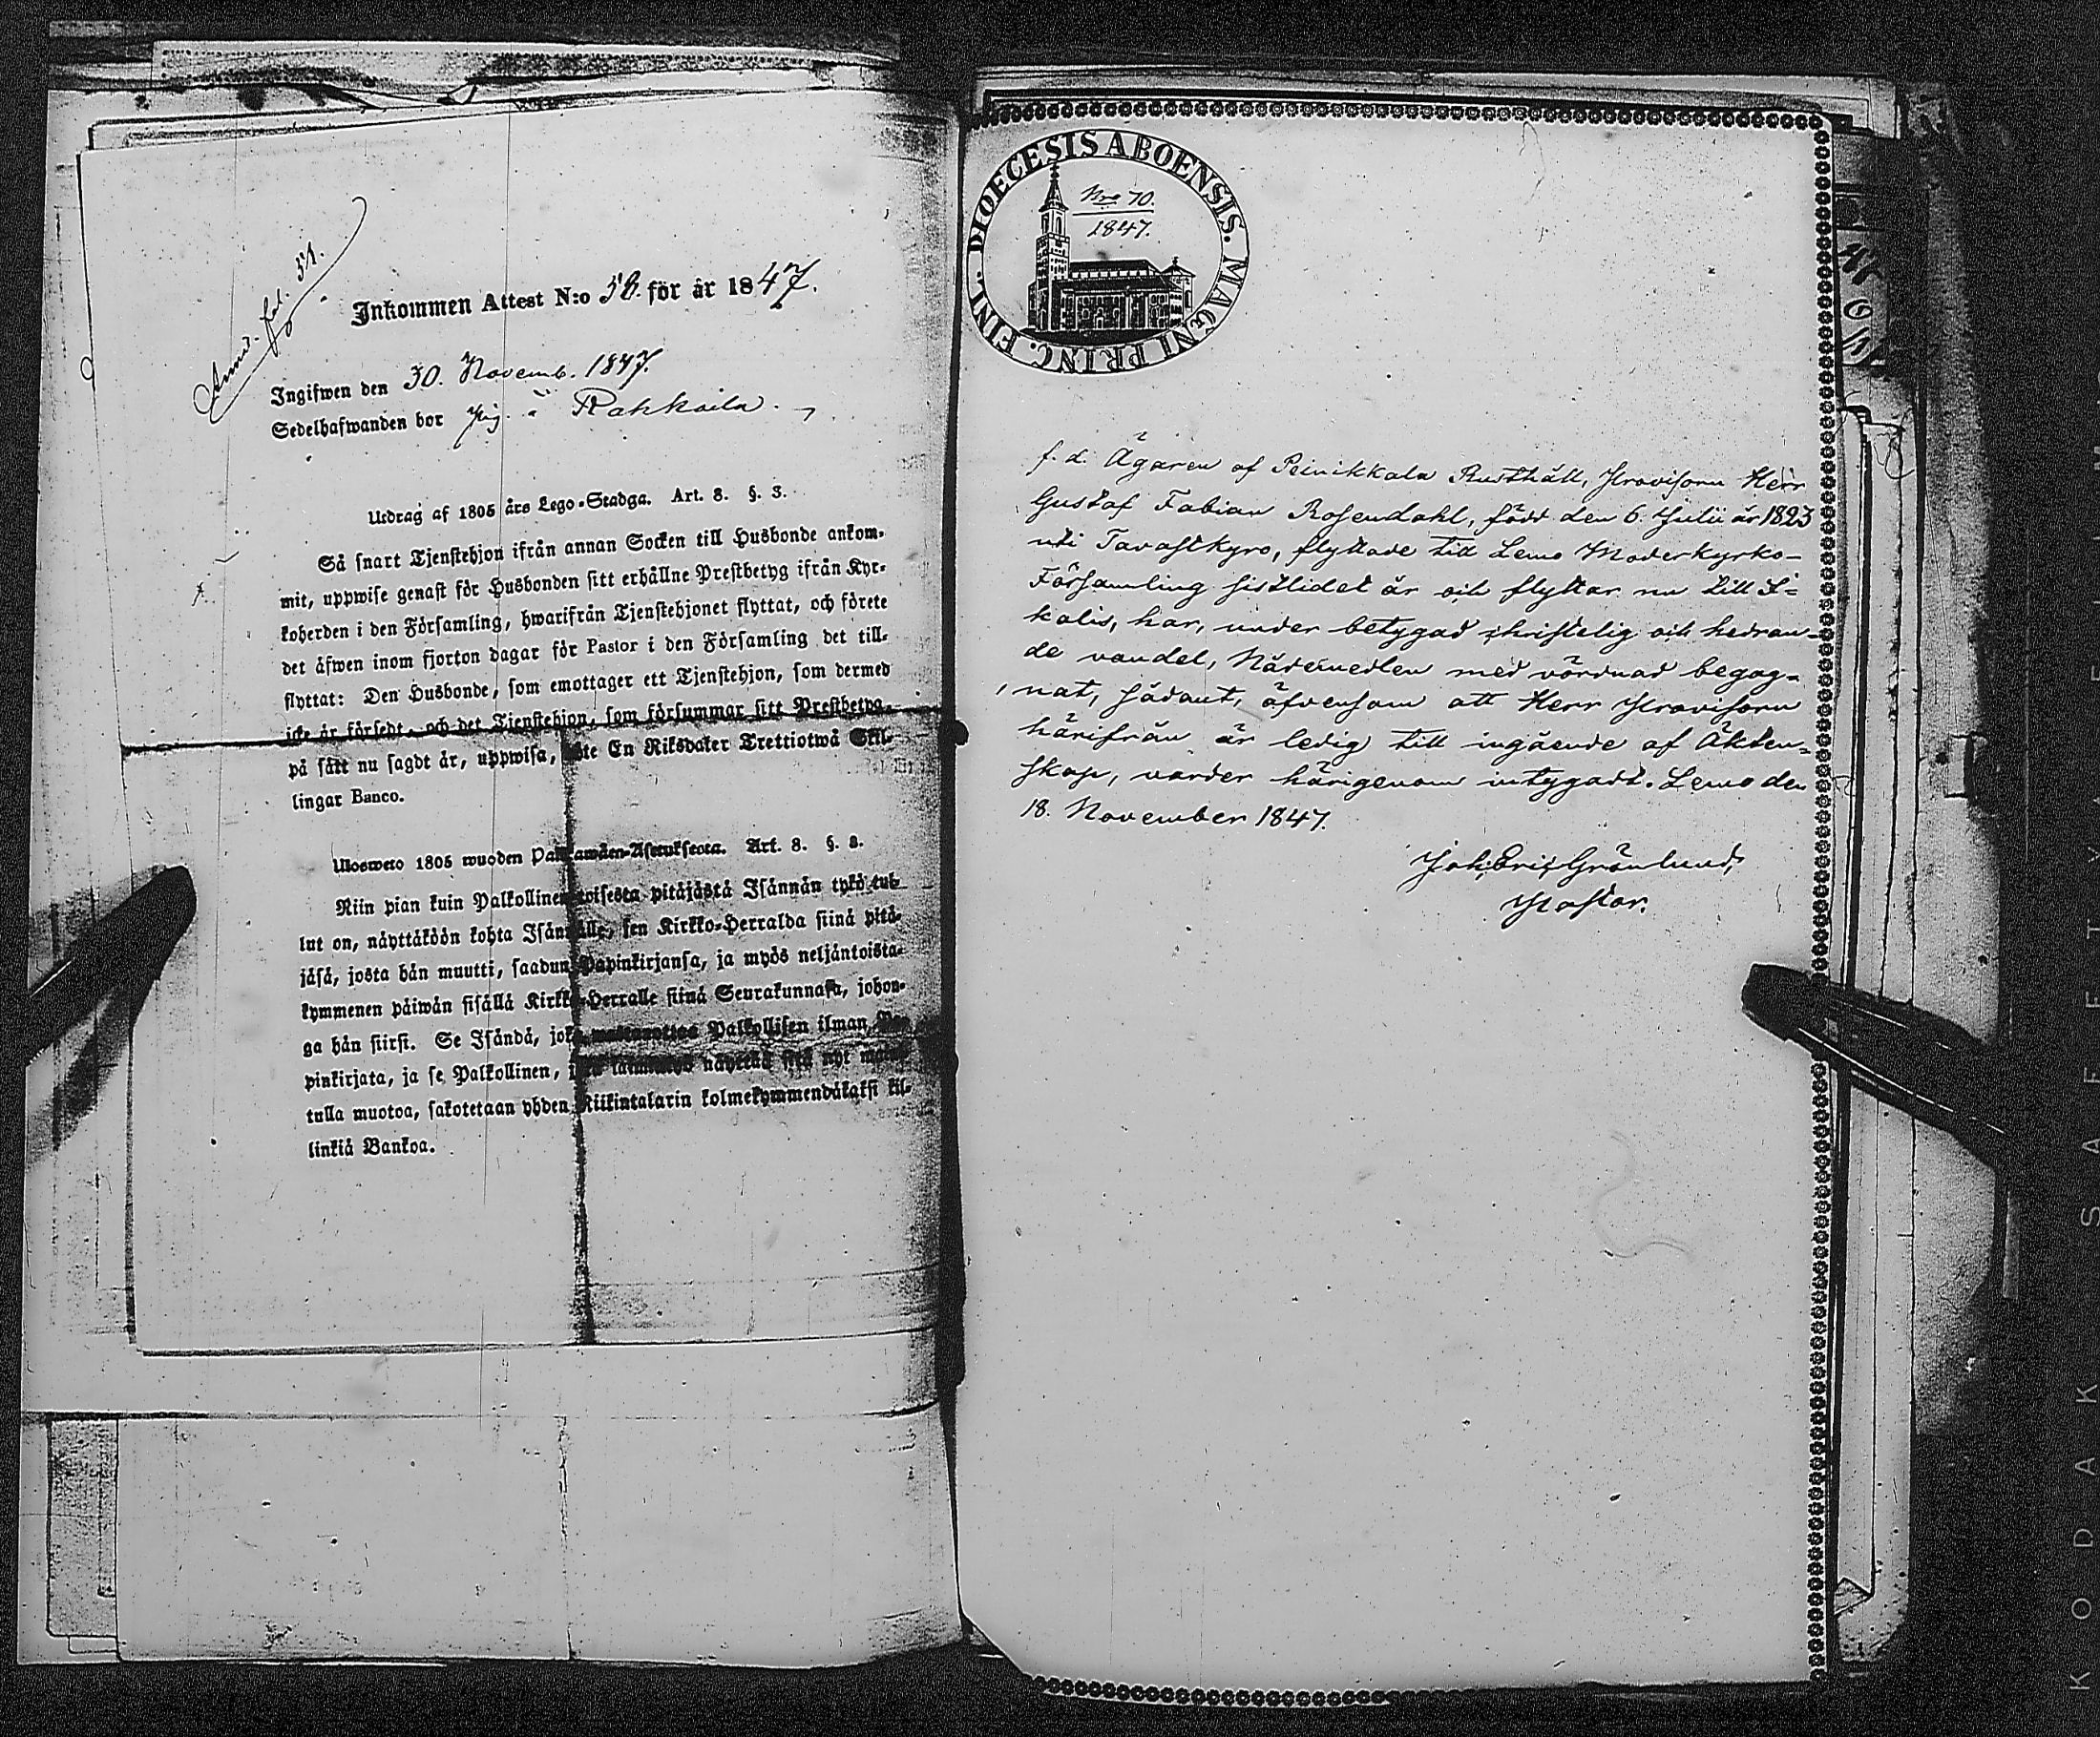 Annot. fol. 51.
Inkommen Attest N:o 58. för år 1847.
Ingifwen den 30. Novemb. 1847.
Sedelhafwanden bor å Rahkoila.
Utdrag af 1805 års Lego-Stadga. Art. 8. §. 3.
Så snart Tjenstehjon ifrån annan Socken till Husbonde ankom-
mit, uppwise genast för Husbonden sitt erhållne Prestbetyg ifrån Kyr-
koherden i den Församling, hwarifrån Tjenstehjonet flyttat, och förete
det äfwen inom fjorton dagar för Pastor i den Församling det till-
flyttat: Den Husbonde, som emottager ett Tjenstehjon, som dermed
icke är försedt, och det Tjenstehjon, som försummar sitt Prestbetyg,
på sätt nu sagdt är, uppwisa, böte En Riksdaler Trettiotwå Skil-
lingar Banco.
Ulosweto 1805 wuoden Palkkawäen-Asetuksesta. Art. 8. §. 3.
Niin pian kuin Palkollinen toisesta pitäjästä Isännän tykö tul-
lut on, näyttäköön kohta Isännälle, sen Kirkko-Herralda siinä pitä-
jäsä, josta hän muutti, saadun Papinkirjansa, ja myös neljäntoista-
kymmenen päiwän sisällä Kirkko-Herralle siinä Seurakunnasa, johon-
ga hän siirsi. Se Isändä, joka wastaanottaa Palkollisen ilman Pa-
pinkirjata, ja se Palkollinen, näyttää sitä nyt maini-
tulla muotoa, sakotetaan yhden Riikintalarin kolmekymmendäkaksi kil-
linkiä Bankoa.
DIOECESIS ABOENSIS. MAGNI PRINC. FINL.
Nro 70.
1847.
f. d. Ägaren af Peinikkala Rusthåll, Provisorn Herr
Gustaf Fabian Rosendahl, född den 6. Julii år 1823
uti Tavastkyro, flyttade till Lemo Moderkyrko-
Församling sistlidet år och flyttar nu till I-
kalis, har, under betygad christelig och hedran-
de vandel, Nådemedlen med vördnad begag-
nat, sådant, äfvensom att Herr Provisorn
härifrån är ledig till ingående af Äkten-
skap, varder härigenom intygadt. Lemo den
18. November 1847.
Joh. Eric Grönlund,
Pastor.
KODAK SAFETY